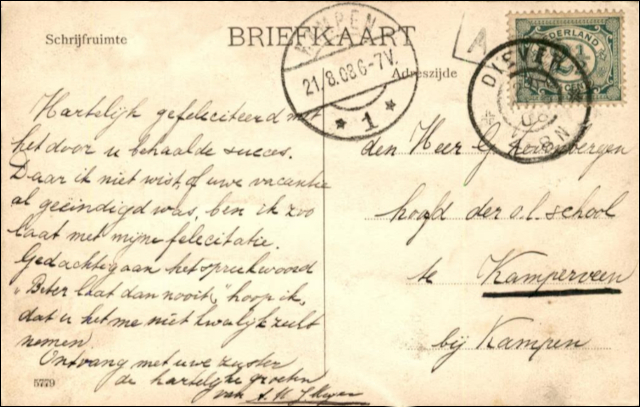 BRIEFKAART
Schrijfruimte
Adreszijde
KAMPEN
21/8.08 6-7V.
* 1 *
DIEVER
NEDERLAND
A
Hartelijk gefeliciteerd met
het door u behaalde succes.
Daar ik niet wist, of uwe vacantie
al geëindigd was, ben ik zoo
laat met mijne felicitatie.
Gedachtig aan het spreekwoord
"Beter laat dan nooit," hoop ik,
dat u het me niet kwalijk zult
nemen.
Ontvang met uwe zuster
de hartelijke groeten
van A. H.
5779
den Heer G.
hoofd der o.l. school
te Kamperveen
bij Kampen